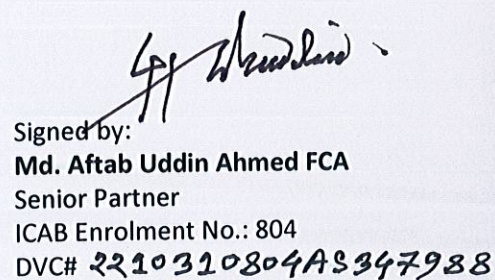 Signed by:
Md. Aftab Uddin Ahmed FCA
Senior Partner
ICAB Enrolment No.: 804
DVC# 2210310804AS347988